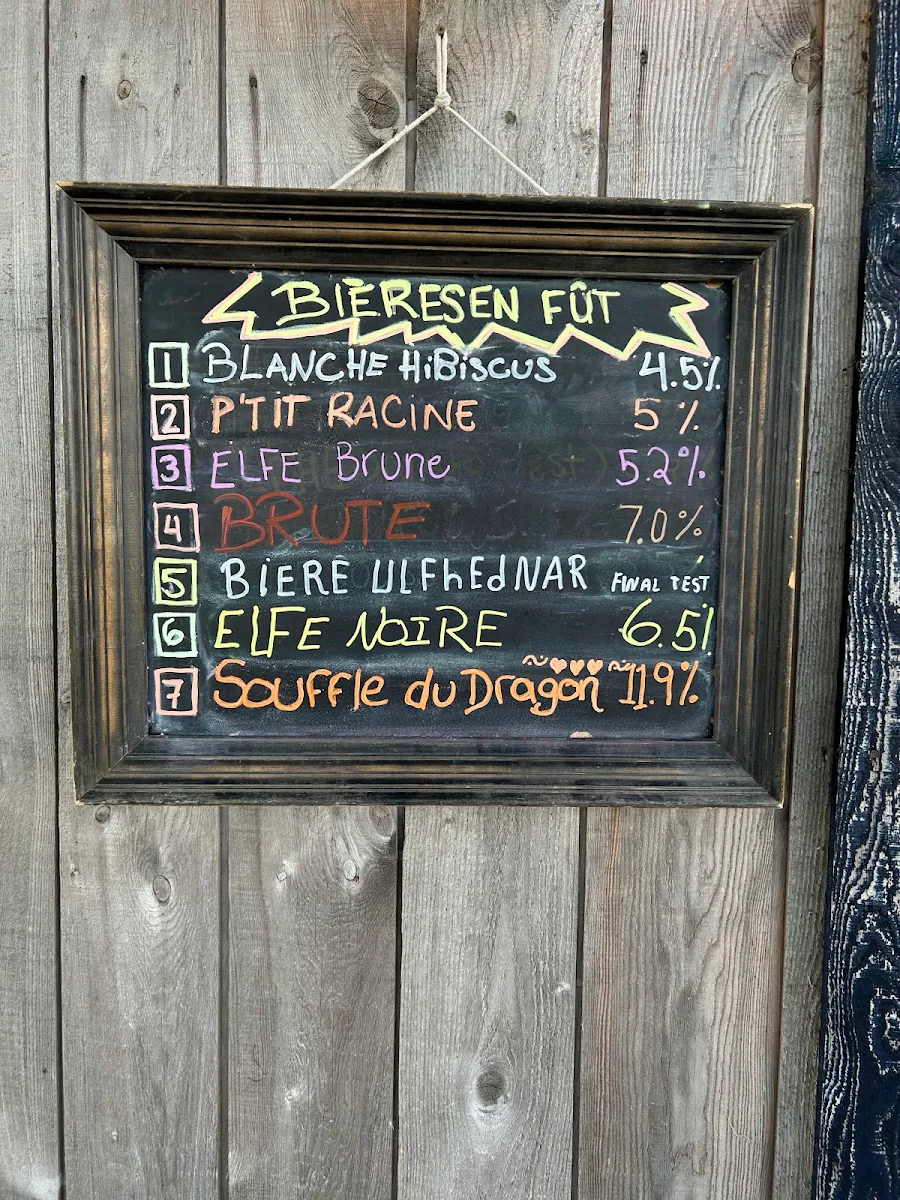 BIÈRES EN FÛT
1 BLANCHE HiBiSCUS 4.5%
2 P'TIT RACINE 5%
3 ELFE Brune 5.2%
4 BRUTE 7.0%
5 BIERE ULFhEdNAR FINAL TEST
6 ELFE NOIRE 6.5%
7 Souffle du Dragon 11.9%